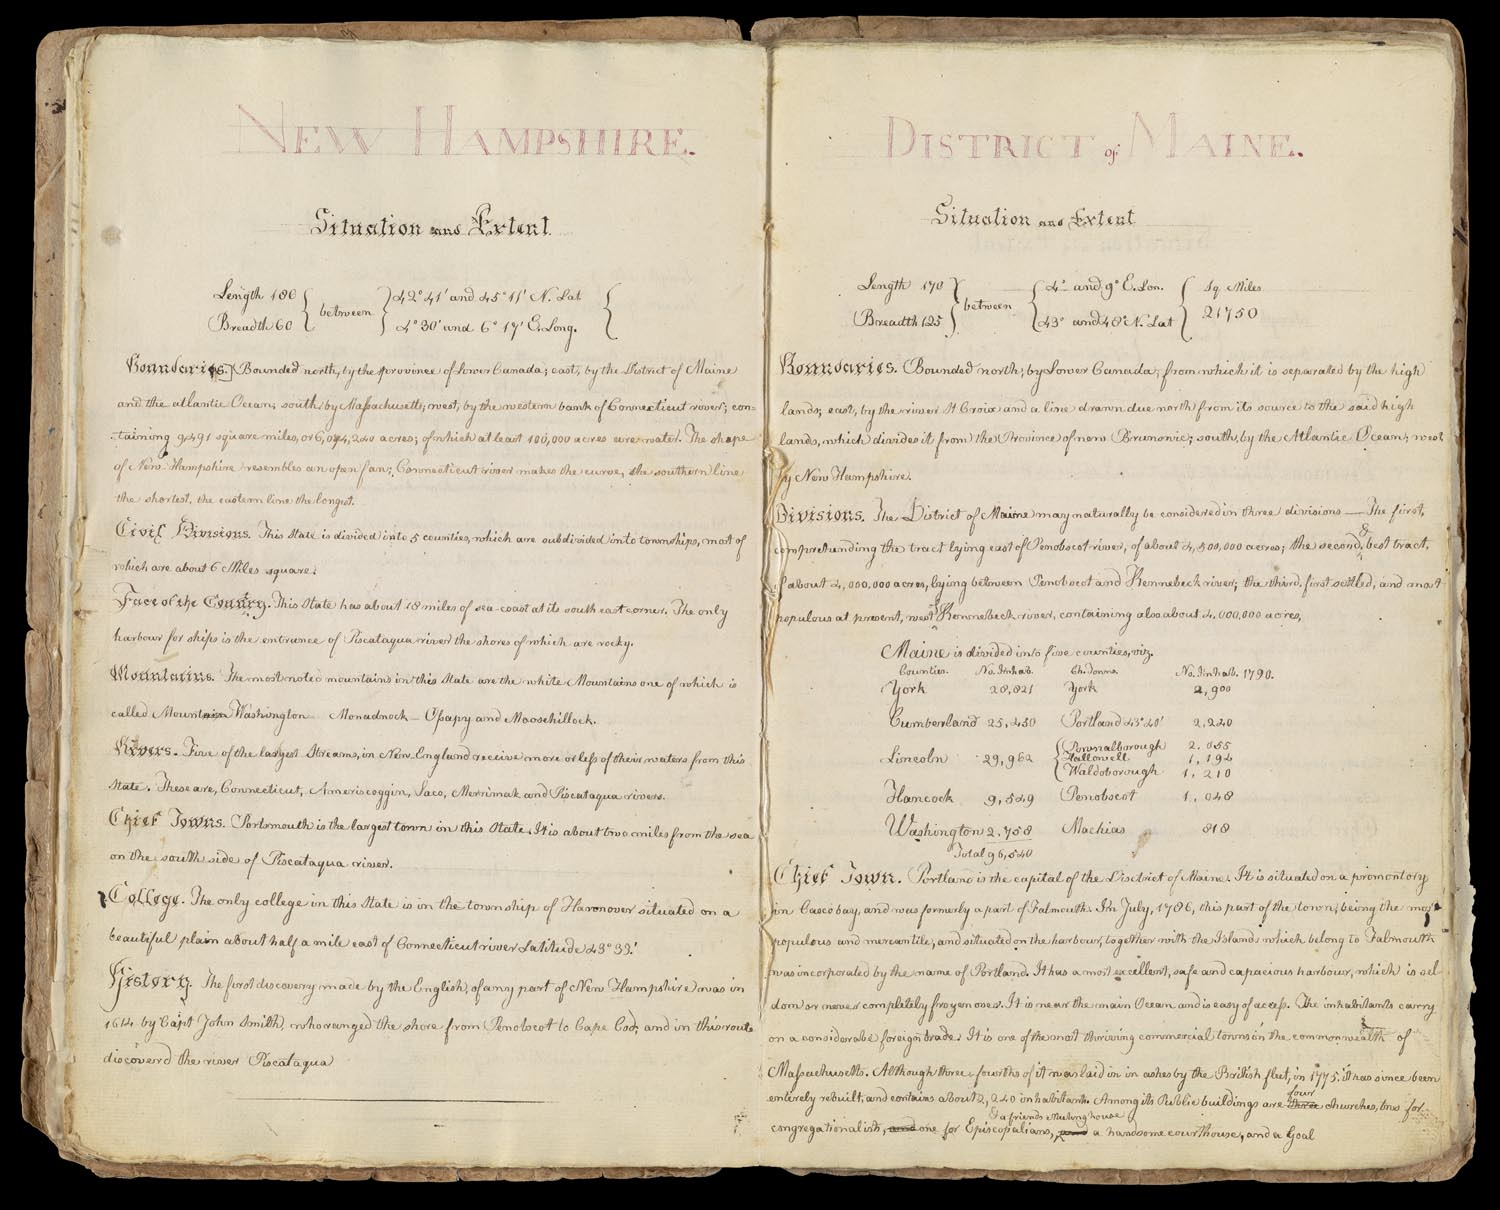 NEW HAMPSHIRE.
Situation and Extent
Length 180 } between } 42° 41' and 45° 11' N. Lat. {
Breadth 60 4° 30' and 6° 17' E. Long.
Boundaries. Bounded north, by the province of Lower Canada; east, by the District of Maine
and the atlantic Ocean; south, by Massachusetts; west, by the western bank of Connecticut rover; con=
taining 9,491 square miles, or 6,074,240 acres; of which at least 100,000 acres are water. The shape
of New-Hampshire resembles an open fan; Connecticut river makes the curve, the southern line
the shortest, the eastern line the longest.
Civil Divisions. This State is divided into 5 counties, which are subdivided into townships, most of
which are about 6 Miles square.
Face of the Country. This State has about 18 miles of sea-coast at its south east corner. The only
harbour for ships is the entrance of Piscataqua river the shores of which are rocky.
Mountains. The most noted mountains in this State are the white Mountains one of which is
called Mountain Washington Monadnock — Ossapy and Moosehillock.
Rivers. Five of the largest Streams, in New-England receive more or less of their waters from this
State. These are, Connecticut, Ameriscoggin, Saco, Merrimak and Piscataqua rivers.
Chief Towns. Portsmouth is the largest town in this State, It is about two miles from the sea
on the south side of Piscataqua river.
College. The only college in this State is in the township of Hanonover situated on a
beautiful plain about half a mile east of Connecticut river Latitude 43° 33'.
History. The first discovery made by the English, of any part of New Hampshire was in
1614 by Capt John Smith, who ranged the shore from Penobscot to Cape Cod; and in this route
discoverd the river Piscataqua
DISTRICT of MAINE.
Situation and Extent
Length 170 } between { 4° and 9° E. Lon. { Sq Miles
Breadth 125 43° and 48° N. Lat 21750
Boundaries. Bounded north; by Lower Canada, from which it is separated by the high
lands; east, by the river St Croix and a line drawn due north from its source to the said high
lands, which divides it from the Province of new Brunswic; south, by the Atlantic Ocean; west
by New Hampshire.
Divisions. The District of Maine may naturally be considered in three divisions — The first,
comprehending the tract lying east of Penobscot river, of about 4,500,000 acres; the second, & best tract,
of about 4,000,000 acres, lying between Penobscot and Kennebeck river; the third. first settled, and most
populous at present, west of Kennebeck river, containing also about 4,000,000 acres,
Maine is divided into five counties, viz.
Counties. No. Inhab. Ch. Towns. No. Inhab. 1790.
York 28,821 York 2,900
Cumberland 25,450 Portland 43° 40' 2,240
Lincoln 29,962 { Pownalborough 2,055
Hallowell 1,194
Waldoborough 1,210
Hancock 9,549 Penobscot 1,048
Washington 2,758 Machias 818
Total 96,540
Chief Town. Portland is the capital of the District of Maine. It is situated on a promontory
in Casco bay, and was formerly a part of Falmouth. In July, 1786, this part of the town, being the most
populous and mercantile, and situated on the harbour, together with the Islands which belong to Falmouth
was incorporated by the name of Portland. It has a most excellent, safe and capacious harbour, which is sel
dom or never completely frozen over. It is near the main Ocean and is easy of access. The inhabitants carry
on a considerable foreign trade. It is one of the most thriving commercial towns in the commonwealth of
Massachusetts. Although three-fourths of it was laid in in ashes by the British fleet, in 1775, it has since been
entirely rebuilt, and contains about 2,240 inhabitants. Among its Public buildings are three four churches, two for
congregationalists, and one for Episcopalians, & a friends Meeting house and a handsome courthouse, and a Goal